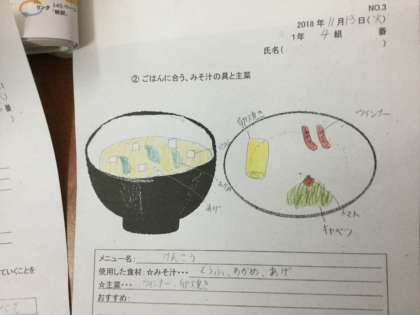 NO.3
2018 年 11 月 13 日 (火)
1年 4 組 番
氏名(
② ごはんに合う、みそ汁の具と主菜
卵焼き
ウインナー
あげ
キャベツ
メニュー名: けんこう
使用した食材:☆みそ汁・・・ とうふ、わかめ、あげ
☆主菜・・・ ウインナー、卵焼き
おすすめ:
ていくことを